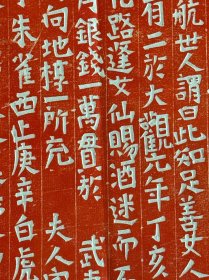 航世人謂曰此知足善女人
有二於大觀元年丁亥
路逢女仙賜酒迷而
銀錢一萬貫於 武
向地一所充 夫人
朱雀西止庚辛白虎